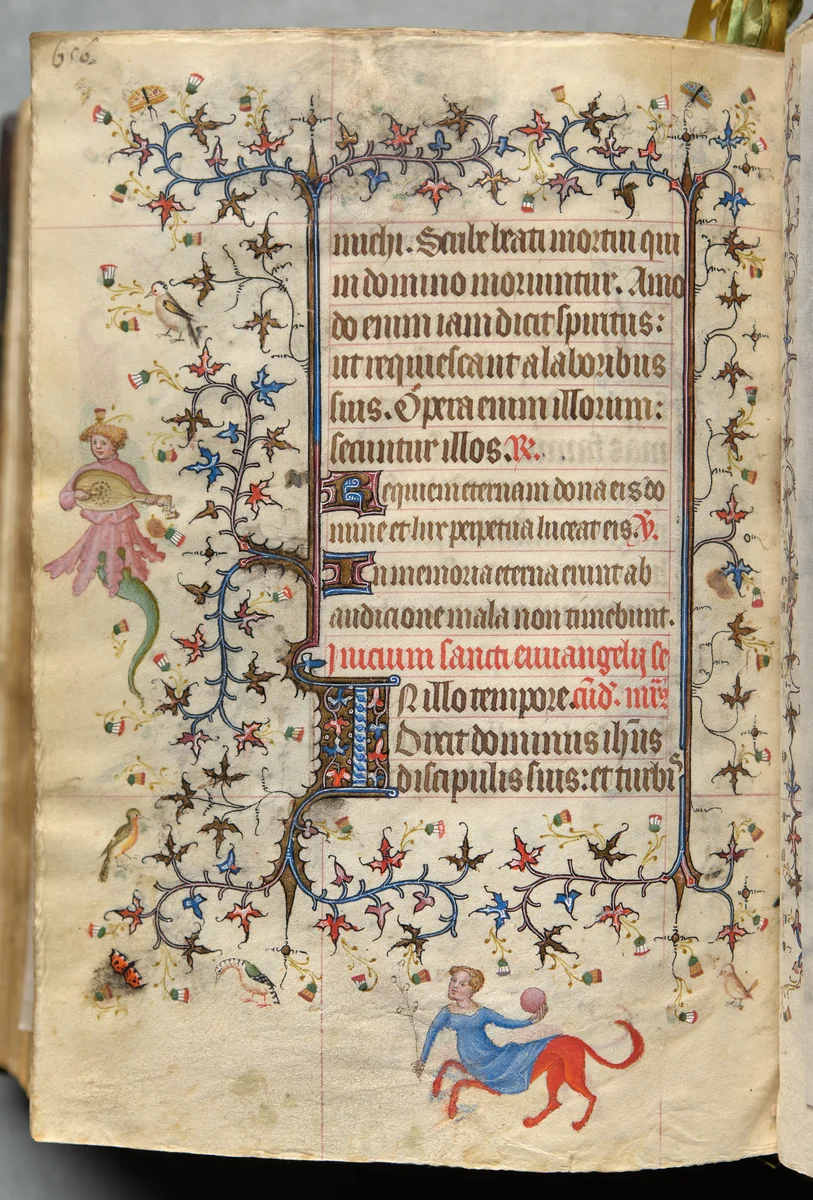 656.
michi. Scribe beati mortui qui
in domino moriuntur. Amo
do enim iam dicit spiritus:
ut requiescant a laboribus
suis. Opera enim illorum:
secuntur illos. R.
Requiem eternam dona eis do
mine et lux perpetua luceat eis. V.
In memoria eterna erunt ab
audicione mala non timebunt.
Inicium sancti euuangelij se
IN illo tempore. cūd.
Dixit dominus ih̄us
discipulis suis: et turbis